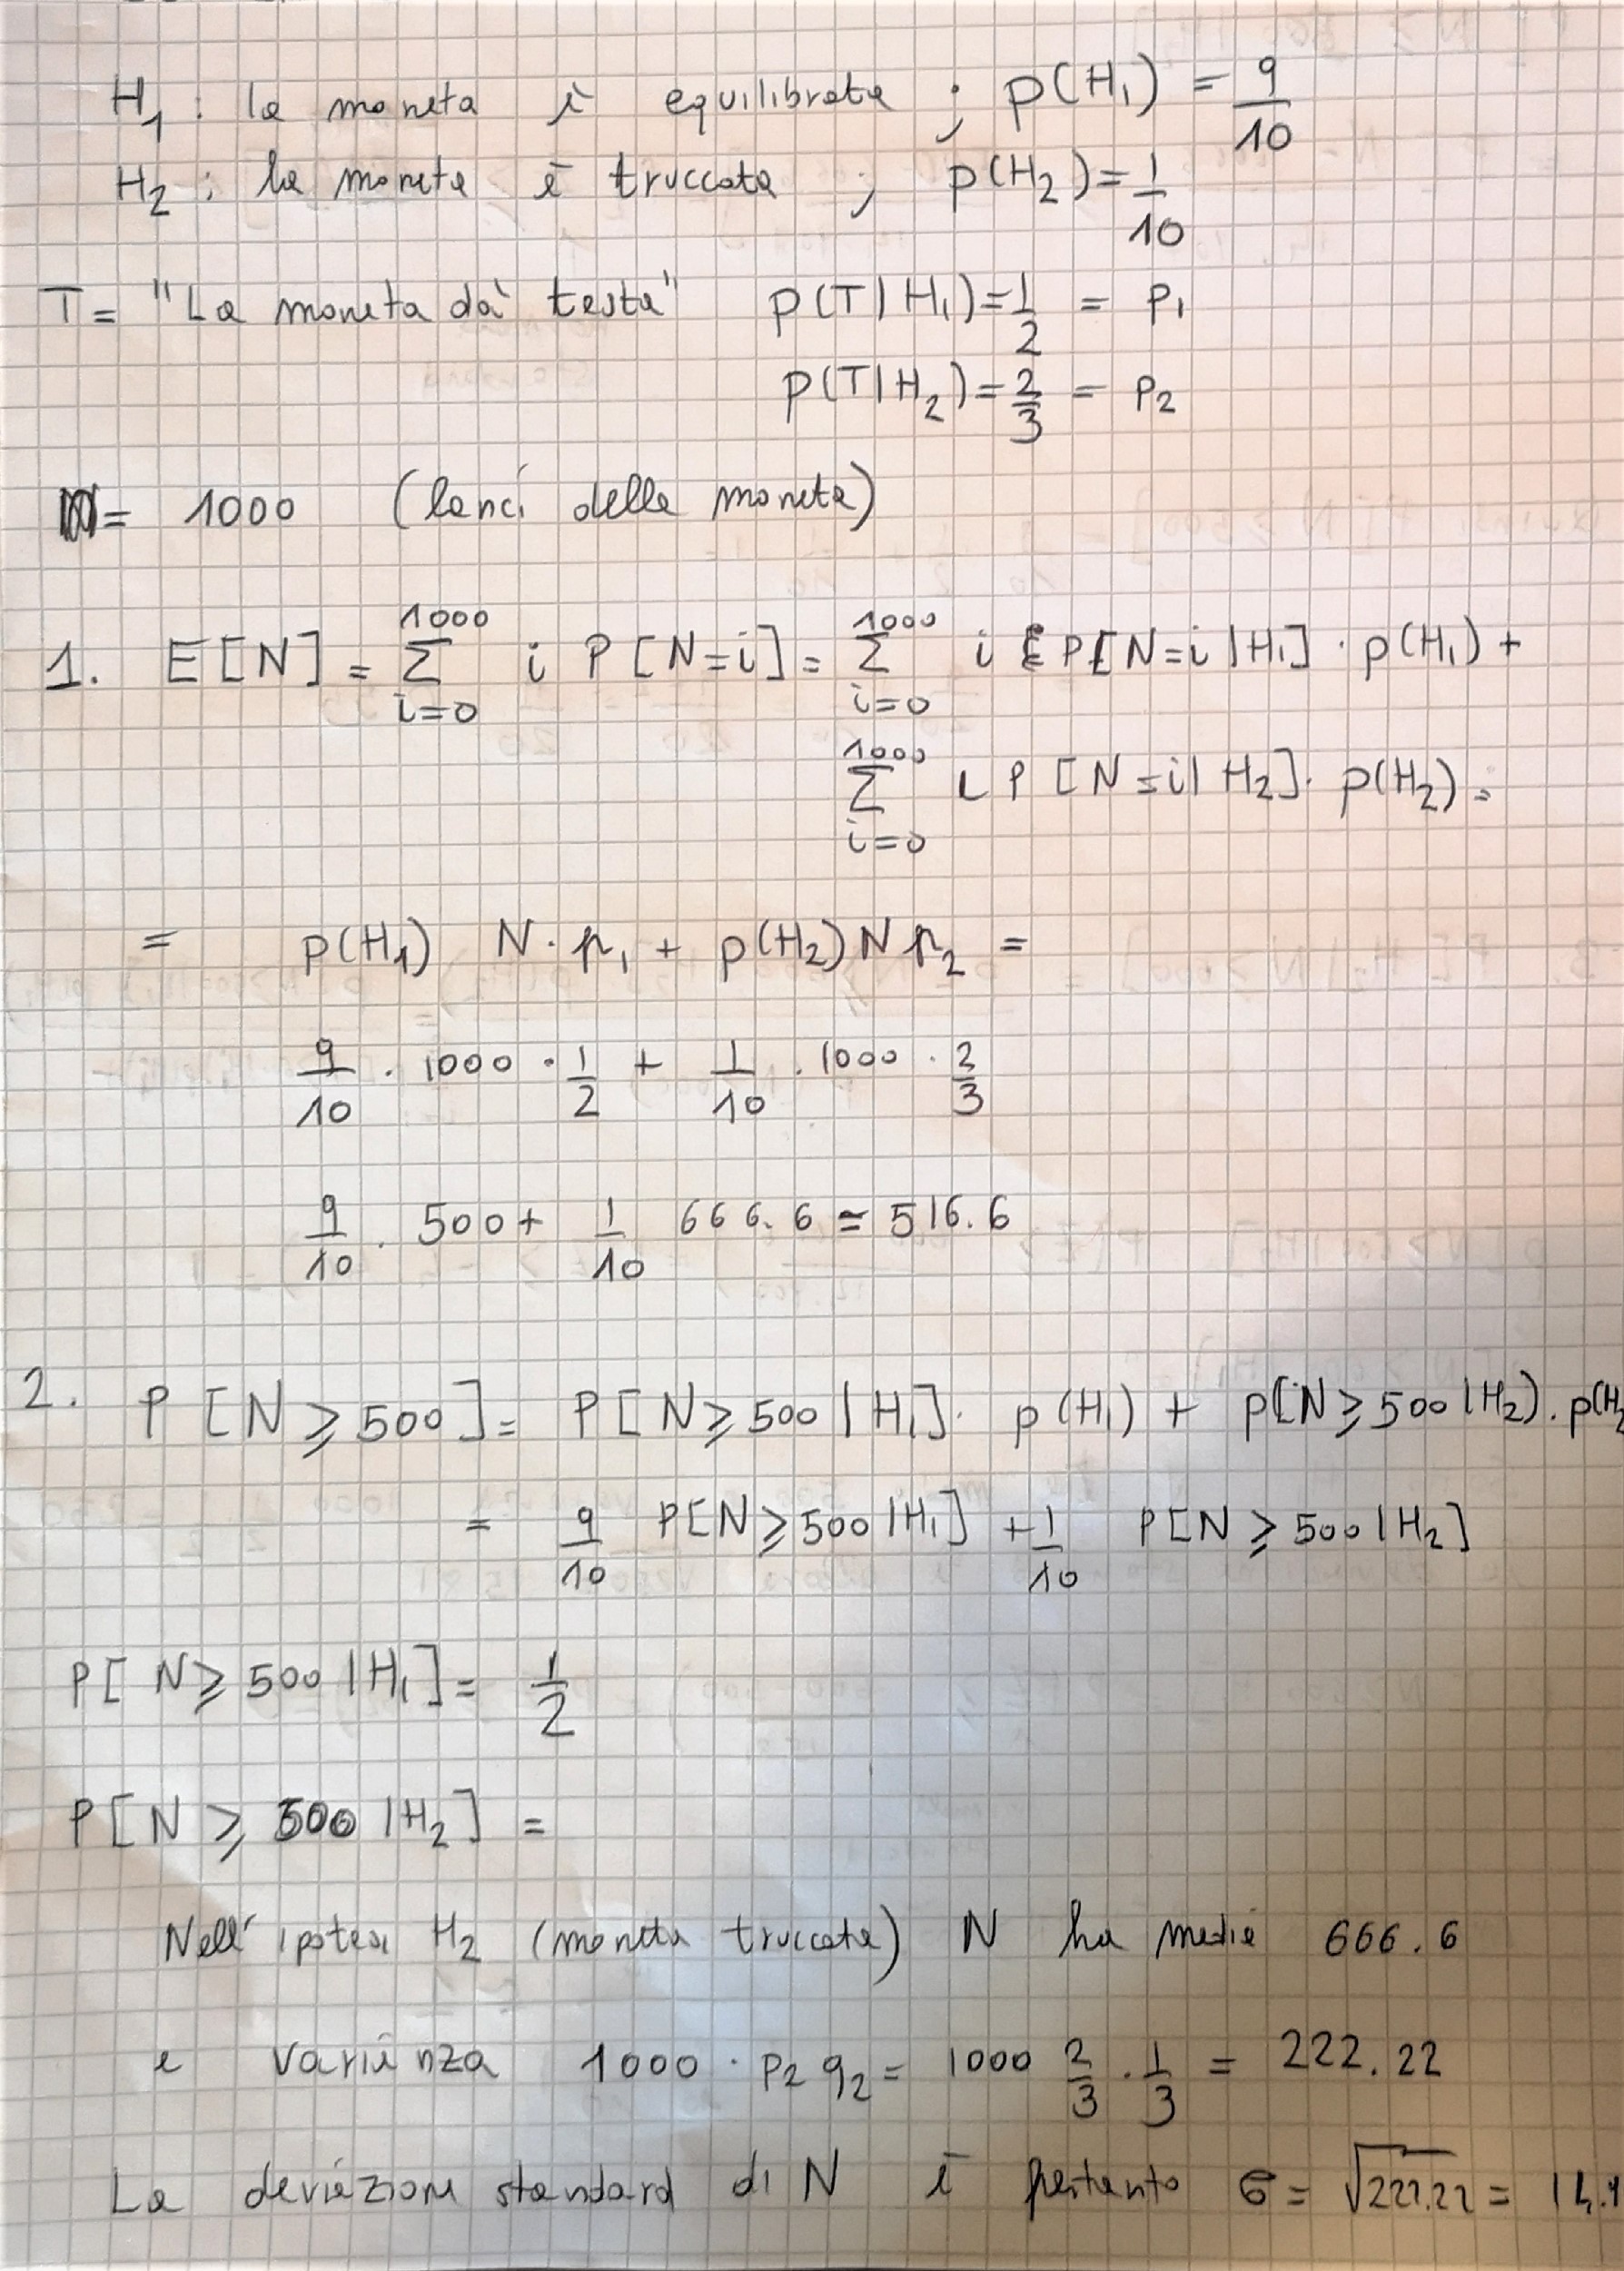 H₁ : la moneta è equilibrata ; p(H₁) = 9/10
H₂ : la moneta è truccata ; p(H₂) = 1/10
T = "La moneta dà testa" p(T|H₁) = 1/2 = p₁
p(T|H₂) = 2/3 = p₂
= 1000 (lanci della moneta)
1. E[N] = Σ_{i=0}^{1000} i P[N=i] = Σ_{i=0}^{1000} i P[N=i|H₁] · p(H₁) +
Σ_{i=0}^{1000} i P[N=i|H₂] · p(H₂) =
= p(H₁) N · p₁ + p(H₂) N p₂ =
9/10 · 1000 · 1/2 + 1/10 · 1000 · 2/3
9/10 · 500 + 1/10 666.6 = 516.6
2. P[N ⩾ 500] = P[N ⩾ 500 | H₁] · p(H₁) + p[N ⩾ 500 | H₂) · p(H₂
= 9/10 P[N ⩾ 500 | H₁] + 1/10 P[N ⩾ 500 | H₂]
P[N ⩾ 500 | H₁] = 1/2
P[N ⩾ 500 | H₂] =
Nell'ipotesi H₂ (moneta truccata) N ha media 666.6
e varianza 1000 · p₂ q₂ = 1000 2/3 · 1/3 = 222.22
La deviazione standard di N è pertanto σ = √222.22 = 14.9